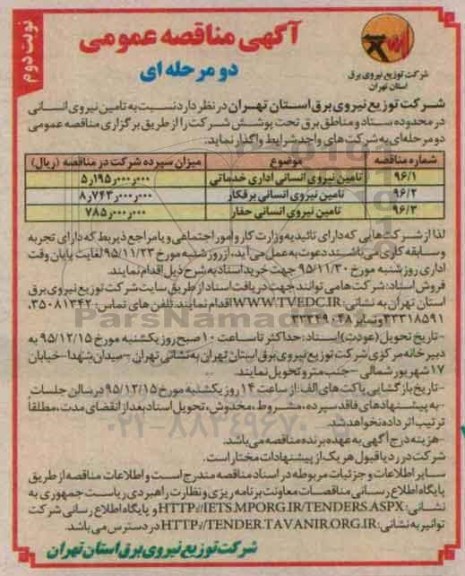 نوبت دوم
آگهی مناقصه عمومی
دو مرحله ای
شرکت توزیع نیروی برق
استان تهران
شرکت توزیع نیروی برق استان تهران در نظر دارد نسبت به تامین نیروی انسانی
در محدوده ستاد و مناطق برق تحت پوشش شرکت را از طریق برگزاری مناقصه عمومی
دو مرحله ای به شرکت های واجد شرایط واگذار نماید.
شماره مناقصه موضوع میزان سپرده شرکت در مناقصه (ریال)
۹۶/۱ تامین نیروی انسانی اداری خدماتی ۵ر۱۹۵ر۰۰۰ر۰۰۰
۹۶/۲ تامین نیروی انسانی برقکار ۸ر۷۴۳ر۰۰۰ر۰۰۰
۹۶/۳ تامین نیروی انسانی حفار ۷۸۵ر۰۰۰ر۰۰۰
لذا از شرکت هایی که دارای تائیدیه وزارت کار و امور اجتماعی و یا مراجع ذیربط که دارای تجربه
و سابقه کاری می باشند دعوت به عمل می آید، از روز شنبه مورخ ۹۵/۱۱/۲۳ لغایت پایان وقت
اداری روز شنبه مورخ ۹۵/۱۱/۳۰ جهت خرید اسناد به شرح ذیل اقدام نمایند.
فروش اسناد: شرکت ها می توانند جهت دریافت اسناد از طریق سایت شرکت توزیع نیروی برق
استان تهران به نشانی: WWW.TVEDC.IR اقدام نمایند. تلفن های تماس: ۳۵۰۸۱۳۴۲،
۳۳۳۱۸۵۹۱ و نمابر ۳۳۳۴۹۰۴۸
-تاریخ تحویل (عودت) اسناد: حداکثر تا ساعت ۱۰ صبح روز یکشنبه مورخ ۹۵/۱۲/۱۵ به
دبیرخانه مرکزی شرکت توزیع نیروی برق استان تهران به نشانی تهران -میدان شهدا-خیابان
۱۷ شهریور شمالی -جنب مترو تحویل نمایند.
-تاریخ بازگشایی پاکت های الف: از ساعت ۱۴ روز یکشنبه مورخ ۹۵/۱۲/۱۵ در سالن جلسات
-به پیشنهادهای فاقد سپرده، مشروط، مخدوش، تحویل اسناد بعد از انقضای مدت، مطلقا
ترتیب اثر داده نخواهد شد.
-هزینه درج آگهی به عهده برنده مناقصه می باشد.
شرکت در رد یا قبول هر یک از پیشنهادات مختار است.
سایر اطلاعات و جزئیات مربوطه در اسناد مناقصه مندرج است و اطلاعات مناقصه از طریق
پایگاه اطلاع رسانی مناقصات معاونت برنامه ریزی و نظارت راهبردی ریاست جمهوری به
نشانی: HTTP://IETS.MPORG.IR/TENDERS.ASPX و پایگاه اطلاع رسانی شرکت
توانیر به نشانی: HTTP://TENDER.TAVANIR.ORG.IR در دسترس می باشد.
شرکت توزیع نیروی برق استان تهران
ParsNamadData
۰۲۱-۸۸۳۴۹۶۷۰